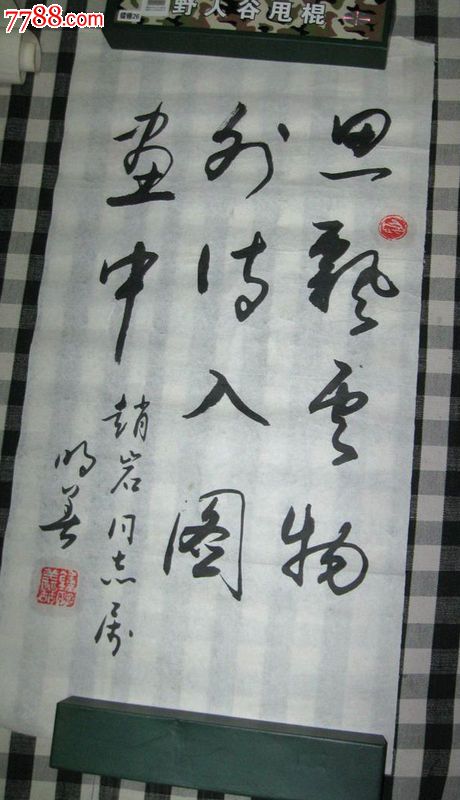 7788.com
野人谷甩棍
思飘云物
外诗入图
画中
趙岩同志属
明善